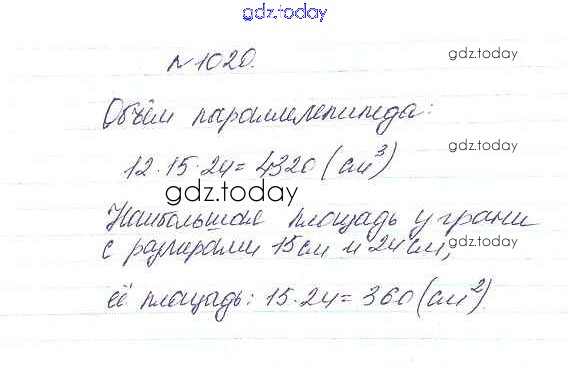 gdz.today
№1020.
gdz.today
Объём параллелепипеда:
gdz.today
12·15·24=4320 (см³)
gdz.today
Наибольшая площадь у грани
с размерами 15см и 24см,
gdz.today
её площадь: 15·24=360 (см²)
gdz.today